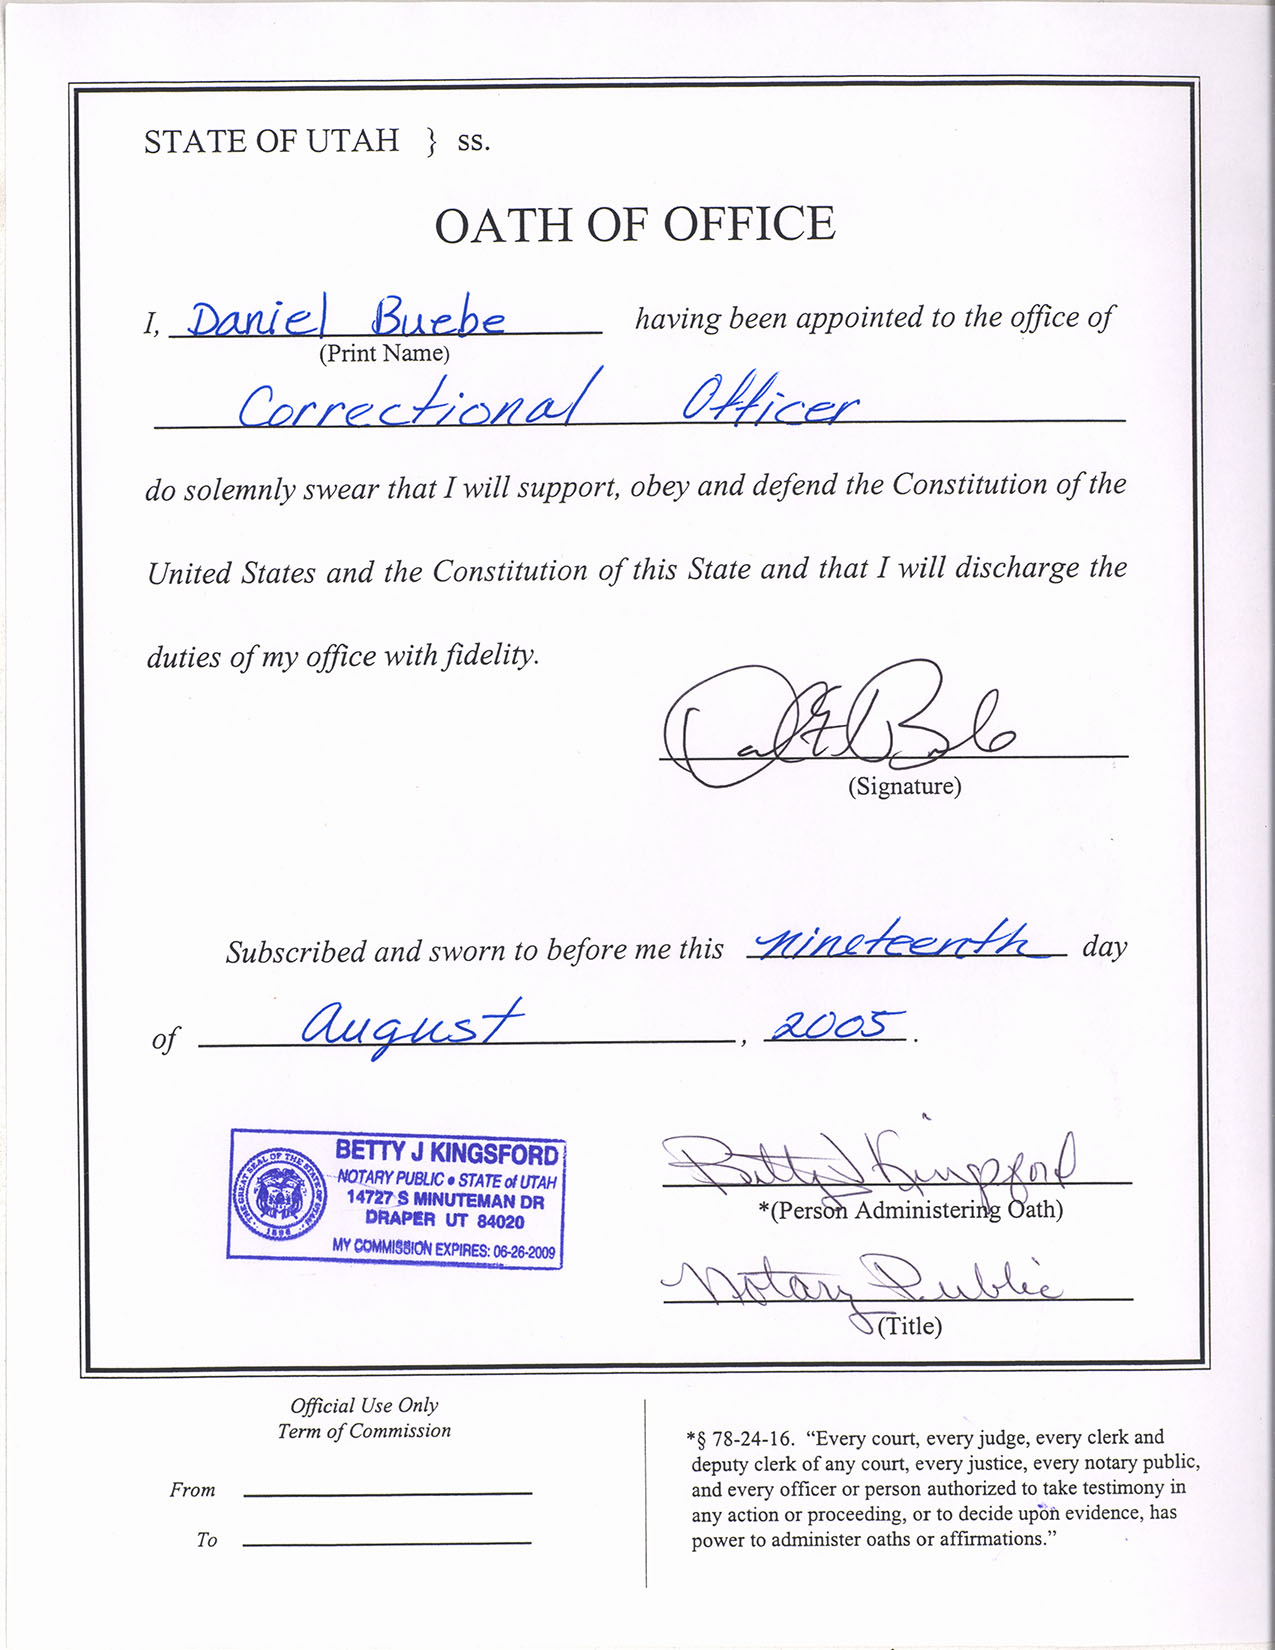 STATE OF UTAH } ss.
OATH OF OFFICE
I, Daniel Buebe having been appointed to the office of
(Print Name)
Correctional Officer
do solemnly swear that I will support, obey and defend the Constitution of the
United States and the Constitution of this State and that I will discharge the
duties of my office with fidelity.
(Signature)
Subscribed and sworn to before me this nineteenth day
of August, 2005.
BETTY J KINGSFORD
NOTARY PUBLIC • STATE of UTAH
14727 S MINUTEMAN DR
DRAPER UT 84020
MY COMMISSION EXPIRES: 06-26-2009
THE GREAT SEAL OF THE STATE OF UTAH
1896
Betty J Kingsford
*(Person Administering Oath)
Notary Public
(Title)
Official Use Only
Term of Commission
From
To
*§ 78-24-16. “Every court, every judge, every clerk and
deputy clerk of any court, every justice, every notary public,
and every officer or person authorized to take testimony in
any action or proceeding, or to decide upon evidence, has
power to administer oaths or affirmations.”